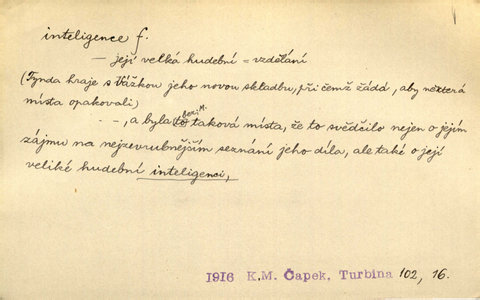 inteligence f.
— její velká hudební = vzdělání
(Tynda hraje s Vážkou jeho novou skladbu, při čemž žádá, aby některá
místa opakovali)
– –, a byla to ber. M. taková místa, že to svědčilo nejen o jejím
zájmu na nejzevrubnějším seznání jeho díla, ale také o její
veliké hudební inteligenci,
1916 K.M. Čapek, Turbina 102, 16.